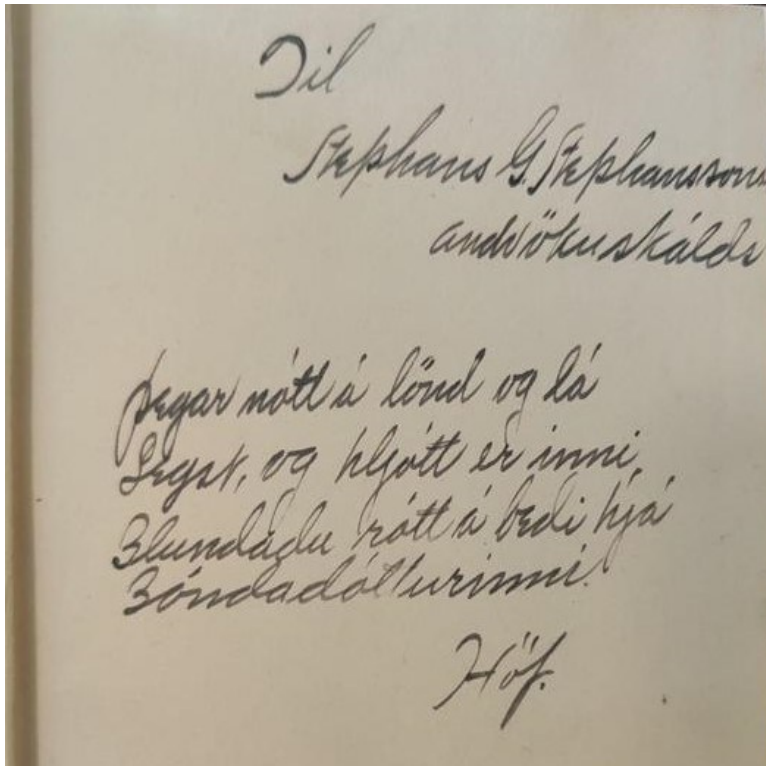 Til
Stephans G. Stephanssonar
andvökuskálds
Þegar nótt á lönd og lá
Legst, og hljótt er inni,
Blundaðu rótt á beði hjá
Bóndadótturinni.
Höf.